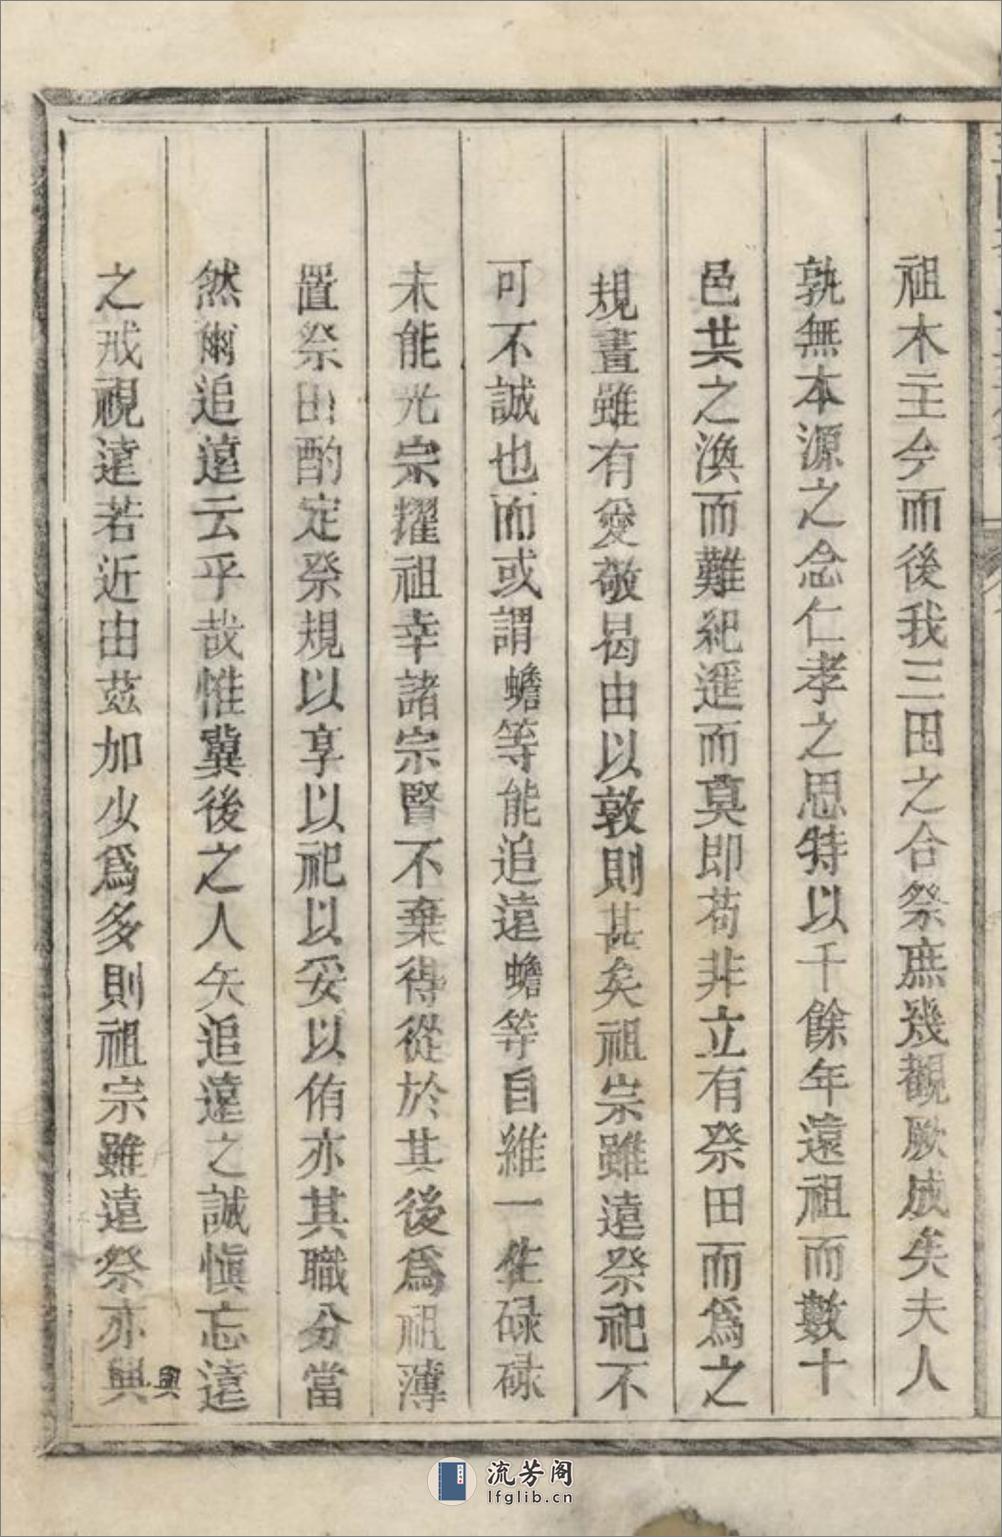 祖木主今而後我三田之合祭庶幾觀厥成矣夫人
孰無本源之念仁孝之思特以千餘年遠祖而數十
邑共之渙而難紀遥而莫即苟非立有祭田而爲之
規畫雖有愛敬曷由以敦則甚矣祖宗雖遠祭祀不
可不誠也而或謂蟾等能追遠蟾等自維一生碌碌
未能光宗耀祖幸諸宗賢不棄得從於其後爲祖薄
置祭田酌定祭規以享以祀以妥以侑亦其職分當
然爾追遠云乎哉惟冀後之人矢追遠之誠慎忘遠
之戒視遠若近由茲加少爲多則祖宗雖遠祭亦與
興
流芳阁
lfglib.cn